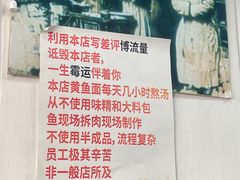 利用本店写差评博流量
诋毁本店者，
一生霉运伴着你
本店黄鱼面每天几小时熬汤
从不使用味精和大料包
鱼现场拆肉现场制作
不使用半成品，流程复杂
员工极其辛苦
非一般店所及